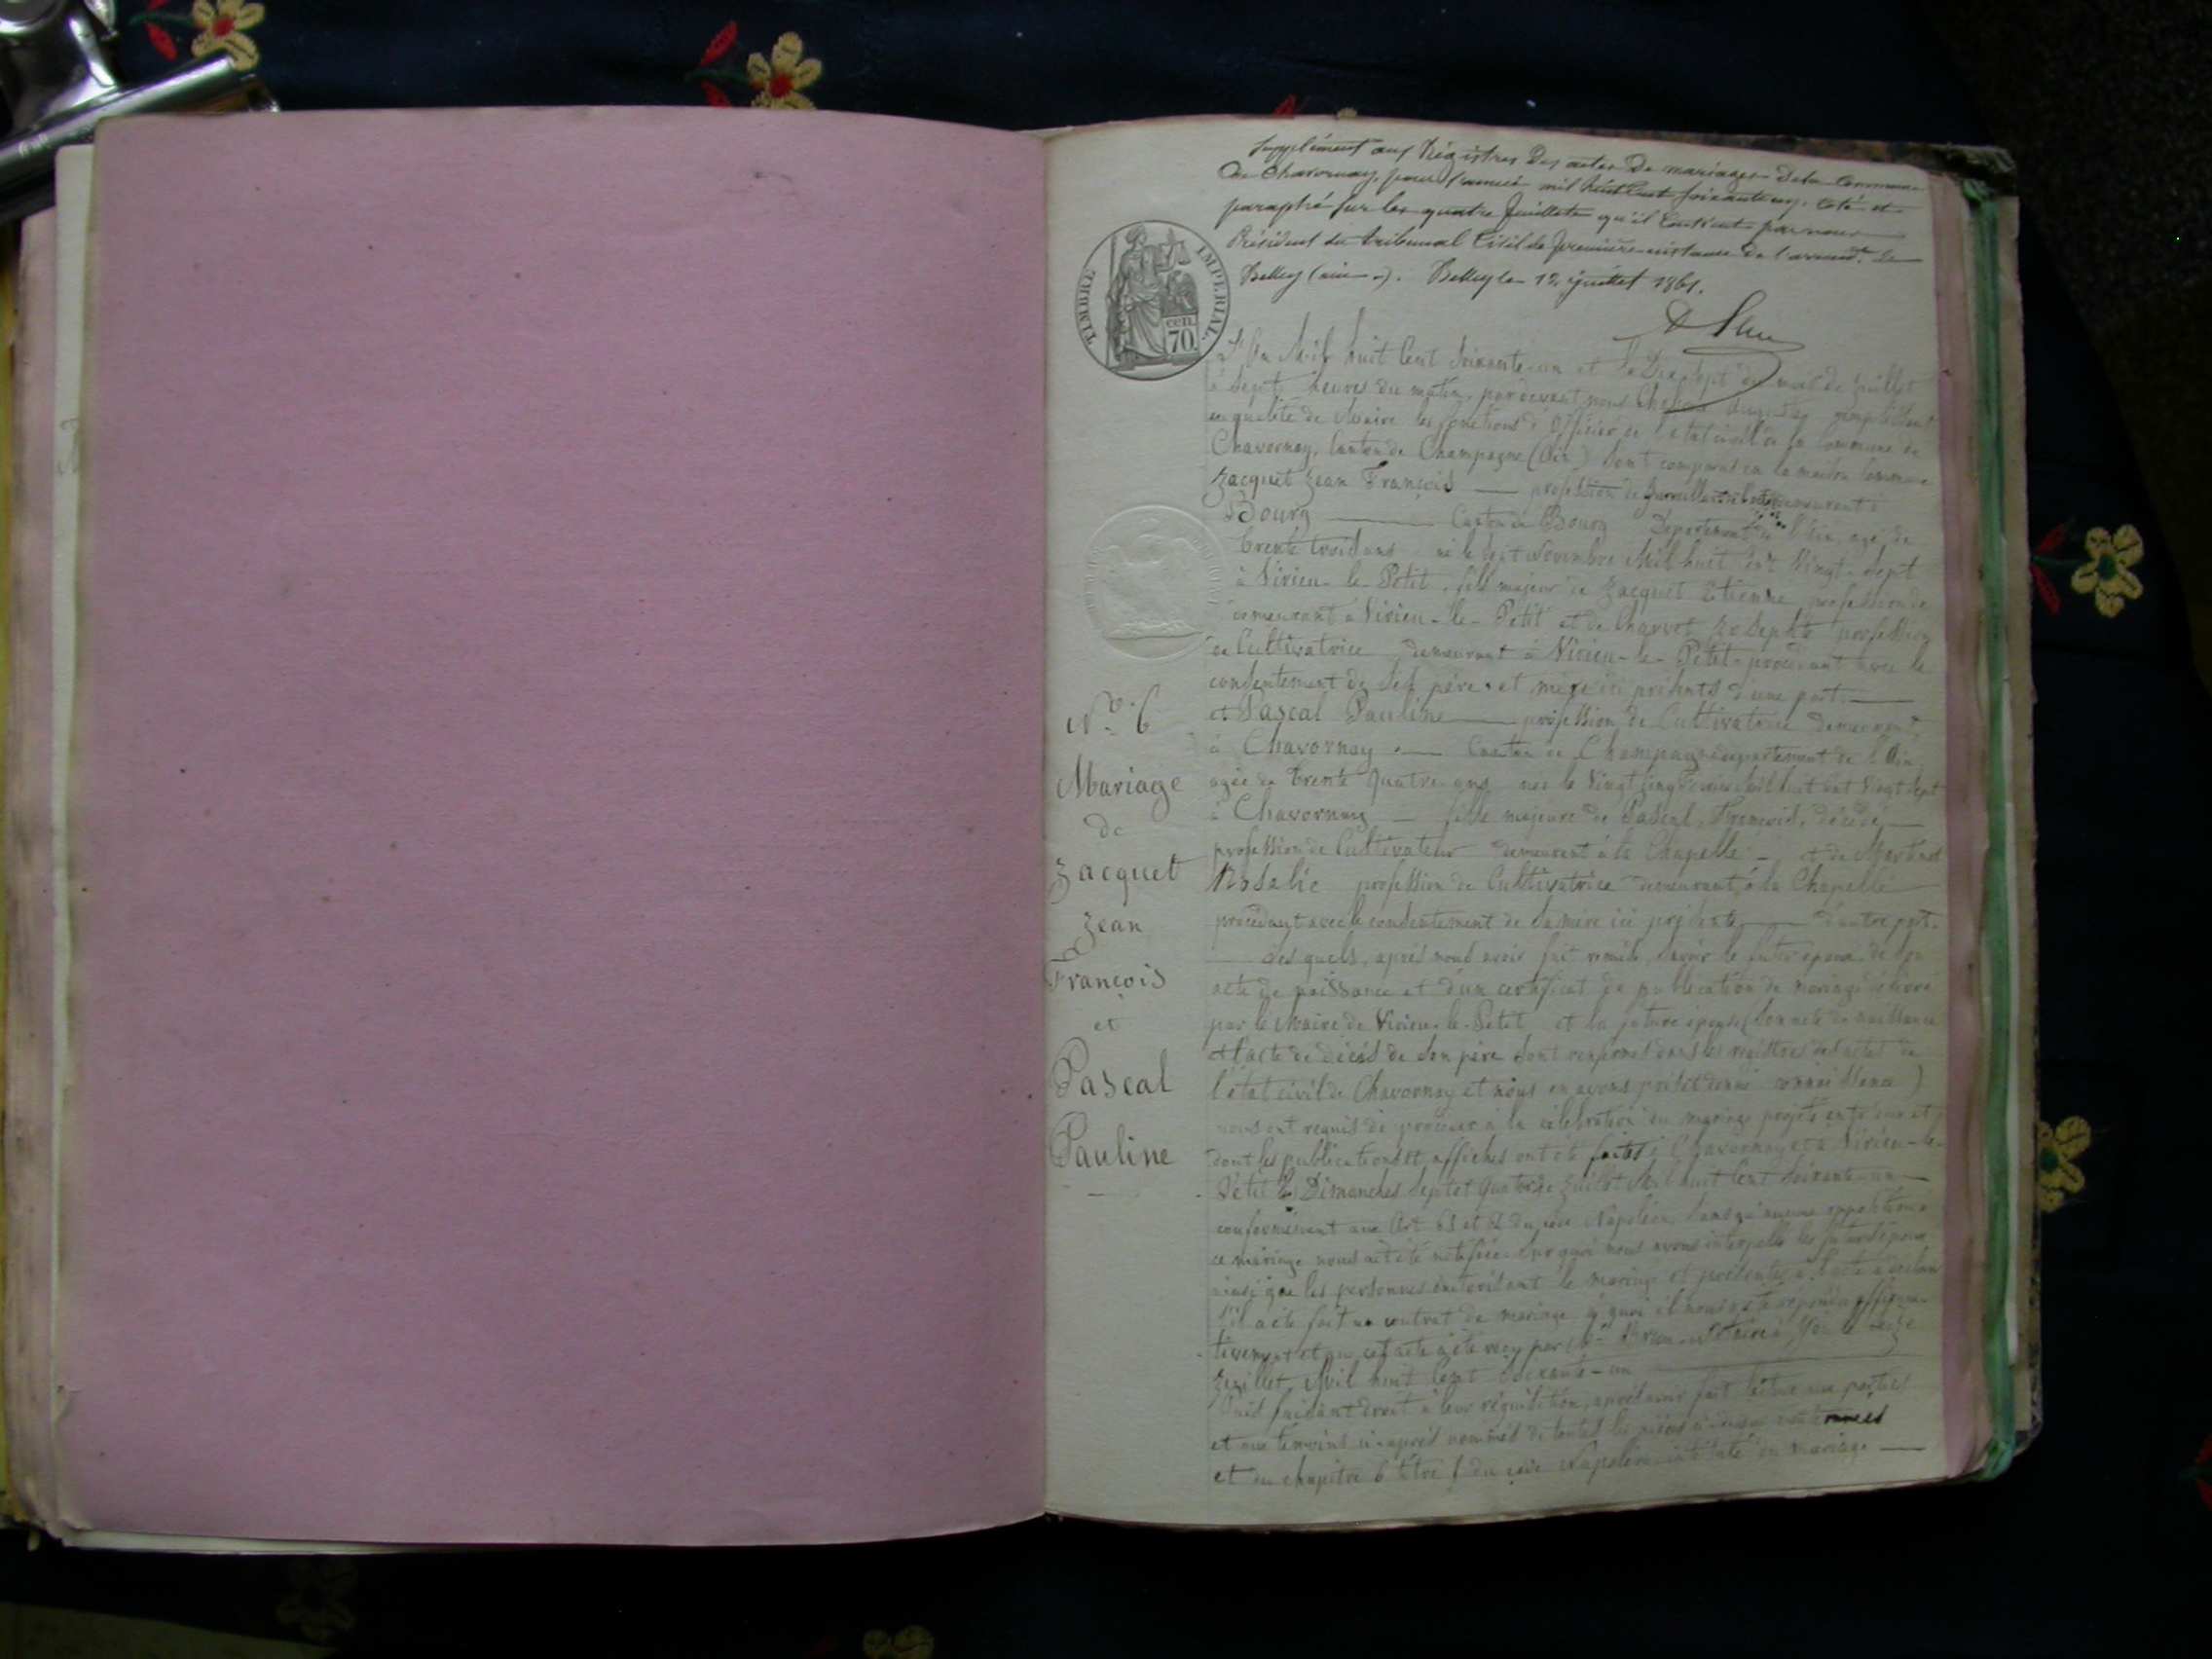 Supplément aux Régistres des actes de mariages de la Commune
de Chavornay, pour l'année mil huit cent soixante un, coté et
paraphé sur les quatre feuillets qu'il contient par nous
Président du tribunal Civil de première instance de l'arrond.t de
Belley (ain). Belley le 12 juillet 1861.
TIMBRE IMPERIAL
70 cen.
L'An Mil huit Cent Soixante-un et le Dix Sept du mois de Juillet
à Sept heures du matin, pardevant nous Auguste remplissant
en qualité de Maire les fonctions d'Officier de l'état civil de la Commune de
Chavornay, Canton de Champagne (Ain) sont comparus en la maison Commune
Jacquet Jean François profession de demeurant à
Bourg Canton de Bourg Département de l'Ain, agé de
trente trois ans né le Novembre Mil huit Cent Vingt-Sept
à Virieu-le-Petit, fils majeur de Jacquet Etienne profession de
demeurant à Virieu-le-Petit et de Charvet Josephte profession
de Cultivatrice demeurant à Virieu-le-Petit procédant avec le
consentement de ses père et mère ici présents d'une part
et Pascal Pauline profession de Cultivatrice demeurant
à Chavornay Canton de Champagne département de l'Ain
agée de trente quatre ans née le Vingt Cinq Mil huit cent Vingt Sept
à Chavornay fille majeure de Pascal, François, décédé
profession de Cultivateur demeurant à la Chapelle et de
Rosalie profession de Cultivatrice demeurant à la Chapelle
procédant avec le consentement de sa mère ici présente d'autre part.
Les quels, après nous avoir fait remise, savoir le futur époux de son
acte de naissance et d'un certificat de publication de mariage délivré
par le Maire de Virieu-le-Petit et la future épouse (son acte de naissance
et l'acte de décès de son père sont renfermés dans les registres des actes de
l'état civil de Chavornay et nous en avons pris et donné connaissance)
nous ont requis de procéder à la célébration du mariage projeté entre eux et
dont les publications et affiches ont été faites à Chavornay et à Virieu-le-
Petit les Dimanches Sept et Quatorze Juillet Mil huit Cent Soixante-un
conformément aux Art 63 et du code Napoléon, sans qu'aucune opposition à
ce mariage nous ait été notifiée. Sur quoi nous avons interpellé les futurs époux
ainsi que les personnes autorisant le mariage et présentes à l'acte à déclarer
s'il a été fait un contrat de mariage à quoi il nous a été répondu affirma-
tivement et que cet acte a été reçu par Me Notaire à le seize
Juillet Mil huit Cent Soixante-un
Puis faisant droit à leur réquisition, après avoir fait lecture aux parties
et aux témoins ci-après nommés de toutes les pièces ci-dessus
et du chapitre 6 titre 5 du code Napoléon intitulé du mariage
No. 6
Mariage
de
Jacquet
Jean
François
et
Pascal
Pauline